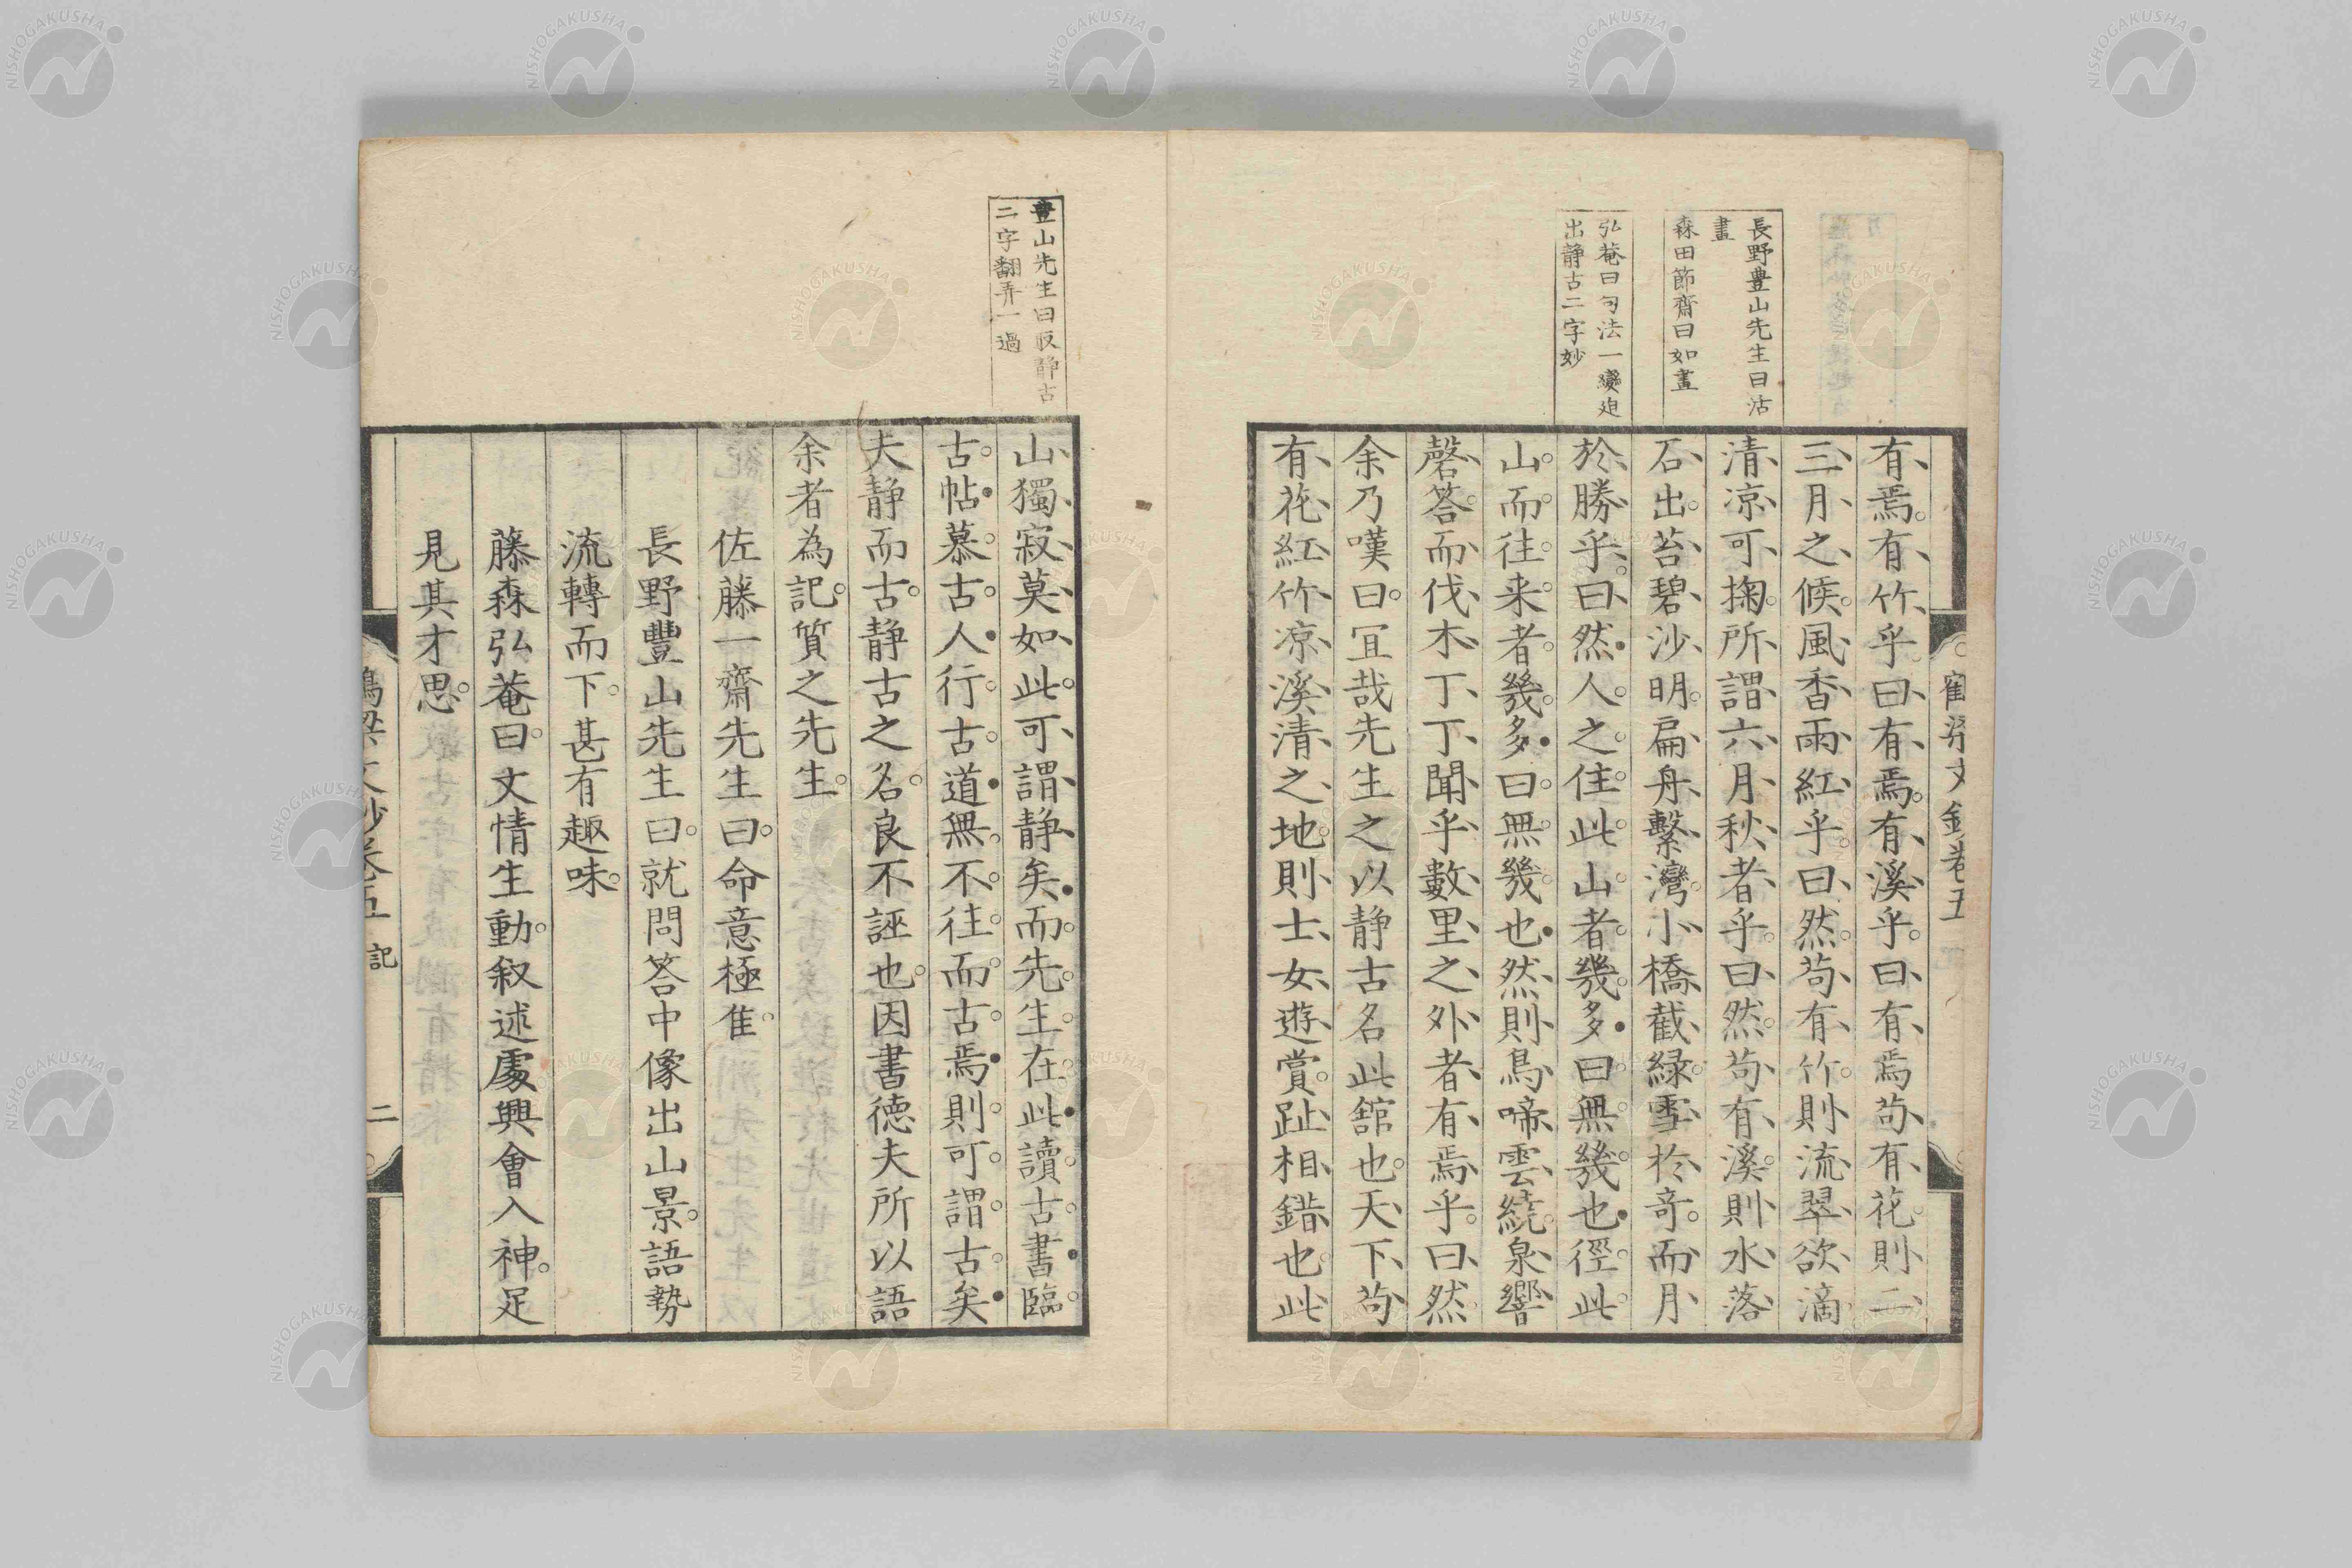 長野豊山先生曰沽
畫
森田節齋曰如畫
弘菴曰句法一變迫
出静古二字妙
有焉有竹乎曰有焉有溪乎曰有焉苟有花則二
三月之候風香雨紅乎曰然苟有竹則流翠欲滴
清凉可掬所謂六月秋者乎曰然苟有溪則水落
石出苔碧沙明扁舟繫灣小橋截緑雪於奇而月
於勝乎曰然人之住此山者幾多曰無幾也徑此
山而往来者幾多曰無幾也然則鳥啼雲繞泉響
磬答而伐木丁丁聞乎數里之外者有焉乎曰然
余乃嘆曰冝哉先生之以静古名此舘也天下苟
有花紅竹凉溪清之地則士女遊賞趾相錯也此
豊山先生曰取静古
二字翻弄一過
山獨寂莫如此可謂静矣而先生在此讀古書臨
古帖慕古人行古道無不往而古焉則可謂古矣
夫静而古静古之名良不誣也因書德夫所以語
余者為記質之先生
佐藤一齋先生曰命意極隹
長野豐山先生曰就問答中像出山景語勢
流轉而下甚有趣味
藤森弘菴曰文情生動叙述處興會入神足
見其才思
卷五
記
二
NISHOGAKUSHA